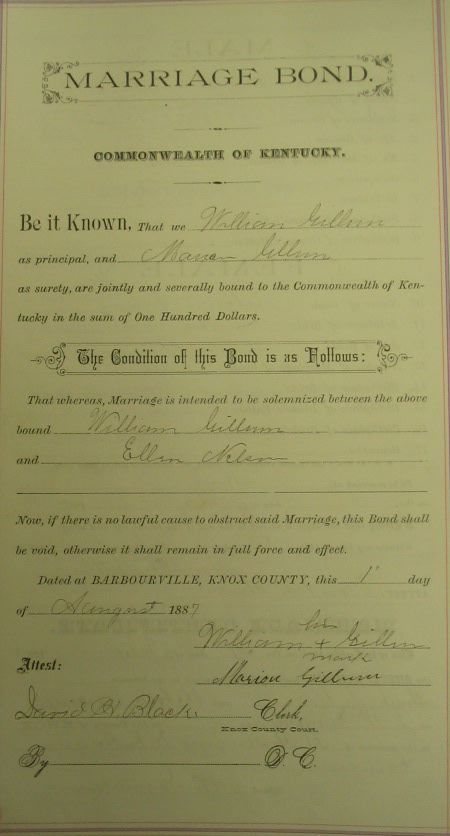 MARRIAGE BOND.
COMMONWEALTH OF KENTUCKY.
Be it Known, That we William Gillum
as principal, and Gillum
as surety, are jointly and severally bound to the Commonwealth of Ken-
tucky in the sum of One Hundred Dollars.
The Condition of this Bond is as Follows:
That whereas, Marriage is intended to be solemnized between the above
bound William Gillum
and Ellen Nelson
Now, if there is no lawful cause to obstruct said Marriage, this Bond shall
be void, otherwise it shall remain in full force and effect.
Dated at BARBOURVILLE, KNOX COUNTY, this 1st day
of August 1887
his
William + Gillum
mark
Attest:
Marion Gillum
David H Black Clerk,
Knox County Court.
By D. C.